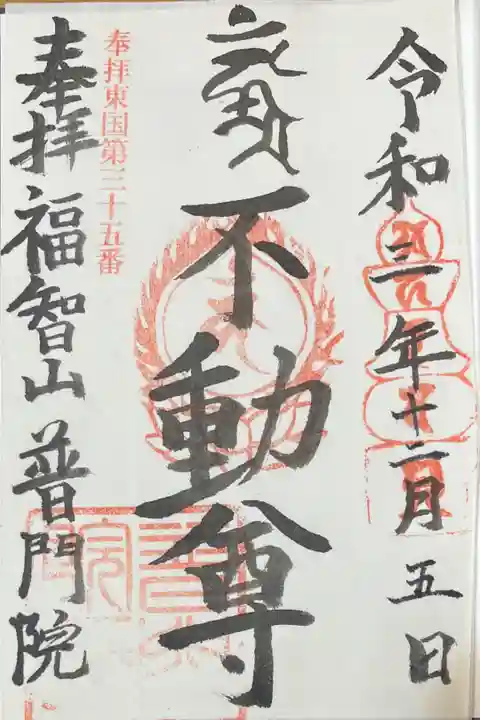 令和三年十二月五日
不動尊
奉拝東国第三十五番
奉拝 福智山 普門院